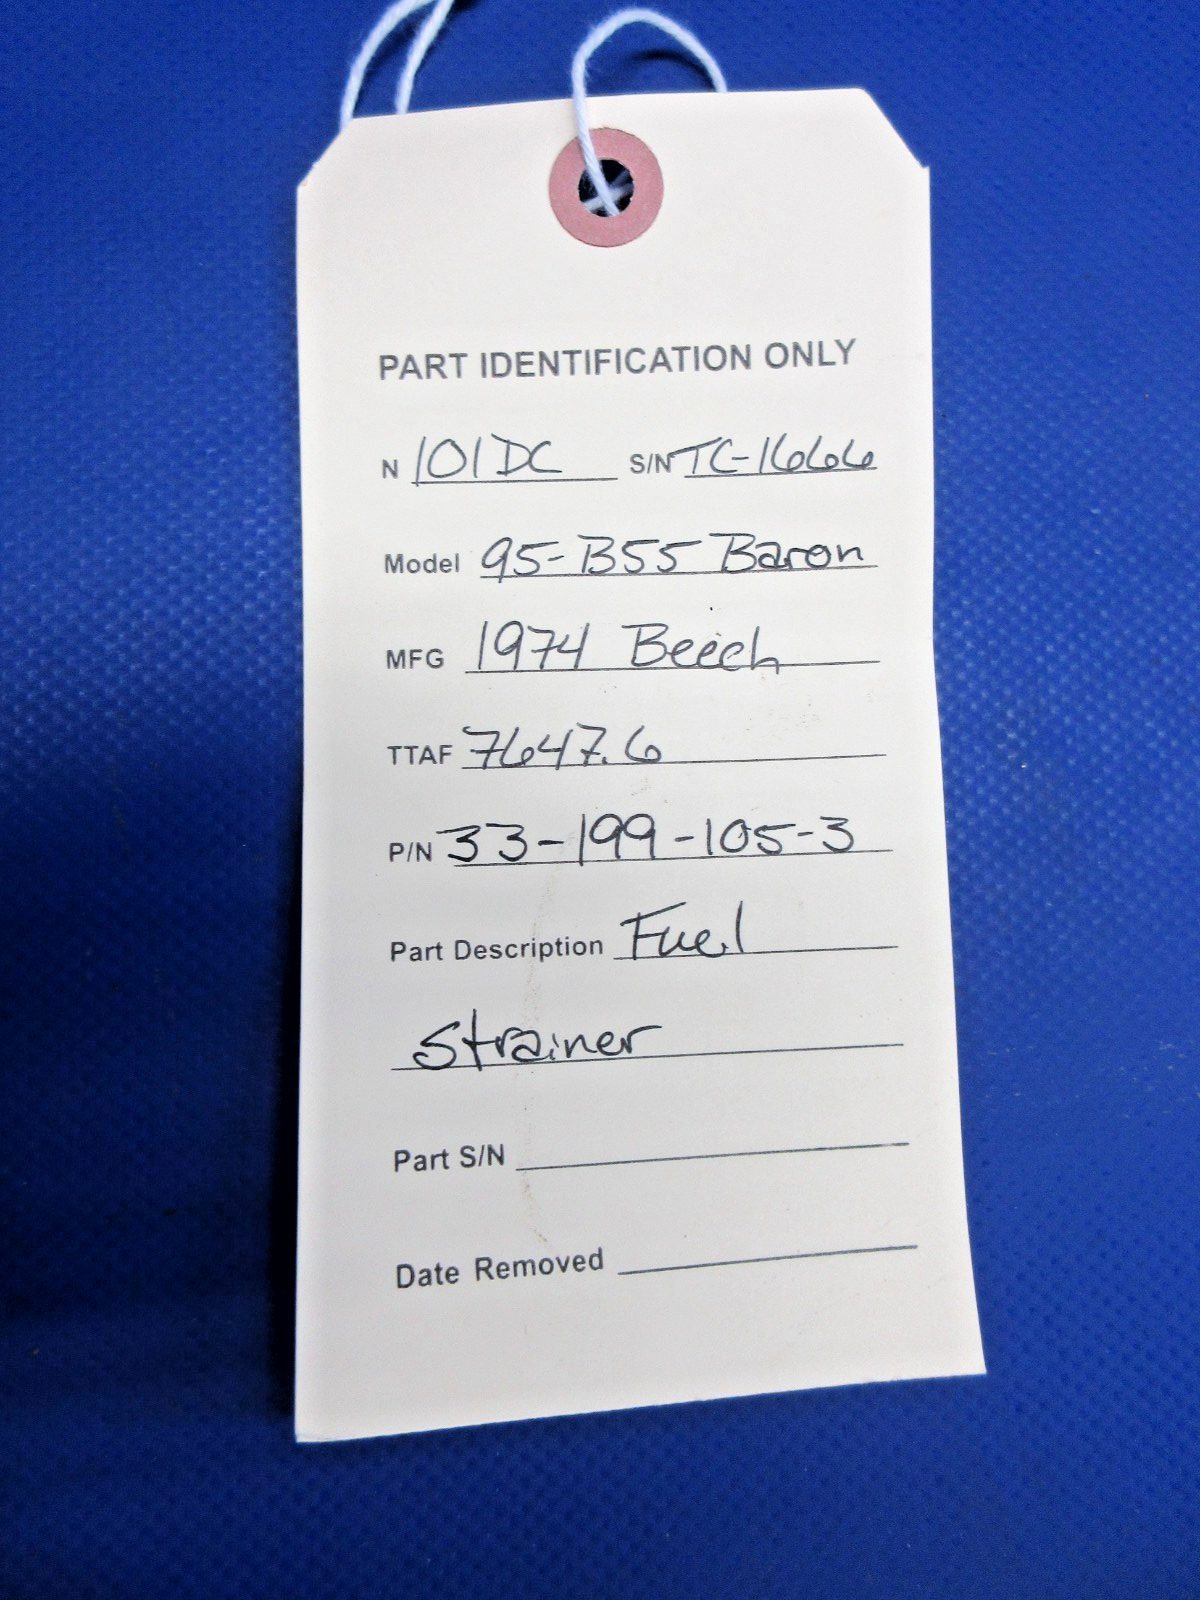 PART IDENTIFICATION ONLY
N 101DC S/N TC-1666
Model 95-B55 Baron
MFG 1974 Beech
TTAF 7647.6
P/N 33-199-105-3
Part Description Fuel
Strainer
Part S/N
Date Removed